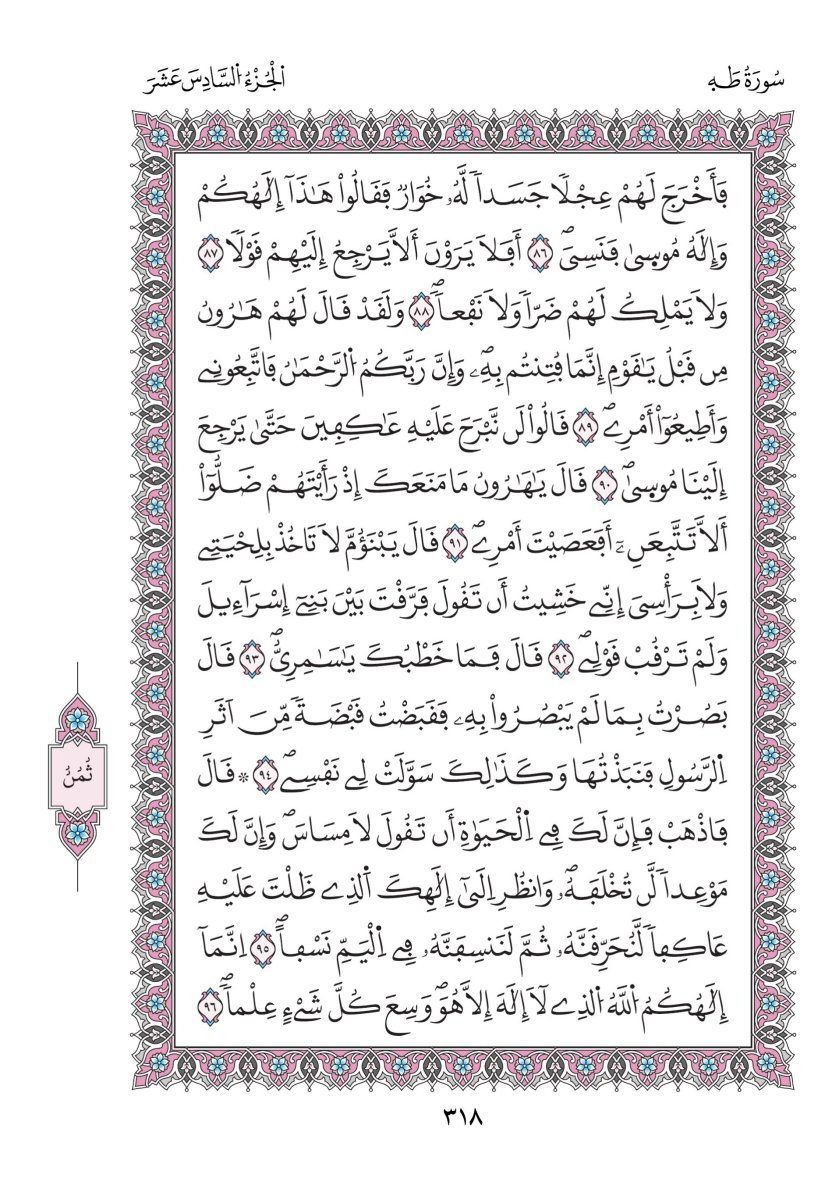 سُورَةُ طَهِ
اَلْجُزْءُ اُلسَّادِسَ عَشَرَ
فَأَخْرَجَ لَهُمْ عِجْلاً جَسَداً لَّهُۥ خُوَارٌ فَقَالُواْ هَٰذَآ إِلَٰهُكُمْ
وَإِلَٰهُ مُوسِىٰ فَنَسِيَۖ ٨٦ أَفَلاَ يَرَوْنَ أَلاَّ يَرْجِعُ إِلَيْهِمْ قَوْلاً ٨٧
وَلاَ يَمْلِكُ لَهُمْ ضَرّاً وَلاَ نَفْعاًۖ ٨٨ وَلَقَدْ قَالَ لَهُمْ هَٰرُونُ
مِن قَبْلُ يَٰقَوْمِ إِنَّمَا فُتِنتُم بِهِۦۖ وَإِنَّ رَبَّكُمُ اُلرَّحْمَٰنُ فَاتَّبِعُونِے
وَأَطِيعُوٓاْ أَمْرِےۖ ٨٩ قَالُواْ لَن نَّبْرَحَ عَلَيْهِ عَٰكِفِينَ حَتَّىٰ يَرْجِعَ
إِلَيْنَا مُوسِىٰۖ ٩٠ قَالَ يَٰهَٰرُونُ مَا مَنَعَكَ إِذْ رَأَيْتَهُمْ ضَلُّوٓاْ
أَلاَّ تَتَّبِعَنِۦٓ أَفَعَصَيْتَ أَمْرِےۖ ٩١ قَالَ يَبْنَؤُمَّ لاَ تَاخُذْ بِلِحْيَتِے
وَلاَ بِرَأْسِيَ إِنِّے خَشِيتُ أَن تَقُولَ فَرَّقْتَ بَيْنَ بَنِےٓ إِسْرَآءِيلَ
وَلَمْ تَرْقُبْ قَوْلِےۖ ٩٢ قَالَ فَمَا خَطْبُكَ يَٰسَٰمِرِيُّۖ ٩٣ قَالَ
بَصُرْتُ بِمَا لَمْ يَبْصُرُواْ بِهِۦ فَقَبَضْتُ قَبْضَةً مِّنَ اَثَرِ
اِلرَّسُولِ فَنَبَذْتُهَا وَكَذَٰلِكَ سَوَّلَتْ لِے نَفْسِےۖ ٩٤ * قَالَ
فَاذْهَبْ فَإِنَّ لَكَ فِے اِلْحَيَوٰةِ أَن تَقُولَ لاَ مِسَاسَۖ وَإِنَّ لَكَ
مَوْعِداً لَّن تُخْلَفَهُۥۖ وَانظُرِ اِلَىٰٓ إِلَٰهِكَ اَلذِے ظَلْتَ عَلَيْهِ
عَاكِفاً لَّنُحَرِّقَنَّهُۥ ثُمَّ لَنَنسِفَنَّهُۥ فِے اِلْيَمِّ نَسْفاًۖ ٩٥ اِنَّمَآ
إِلَٰهُكُمُ اُللَّهُ اُلذِے لآَ إِلَٰهَ إِلاَّ هُوَۖ وَسِعَ كُلَّ شَےْءٍ عِلْماًۖ ٩٦
ثُمُنُ
٣١٨